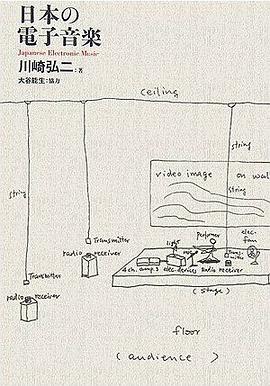 日本の
電子音楽
Japanese Electronic Music
川崎弘二:著
大谷能生:協力
ceiling
string
video image on wal
string
string
Transmitter
radio receiver
light
performer
elec-
fan
4ch. amp.s elec. devices radio receiver
(stage)
Transmitter
radio receiver
floor
(audience)